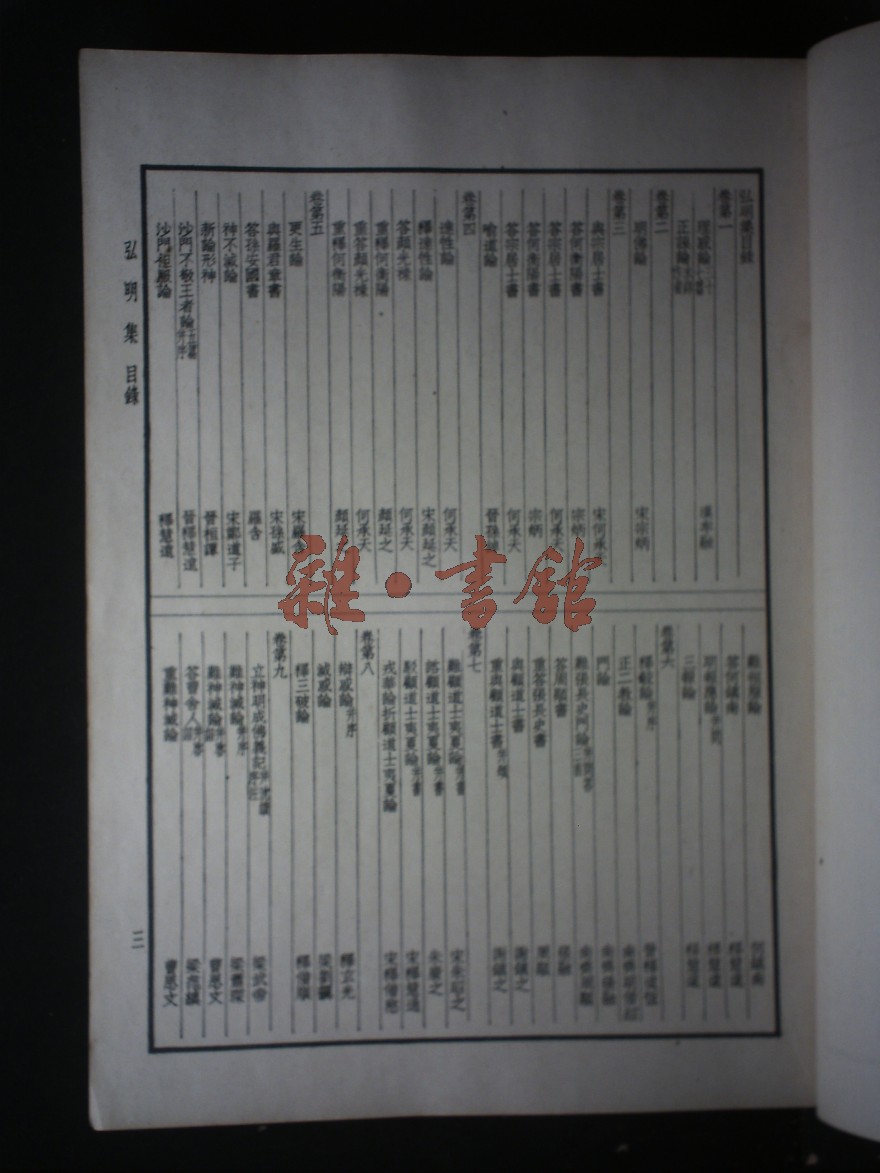 弘明集目錄
卷第一
理惑論 漢牟融
正誣論
卷第二
明佛論 宋宗炳
卷第三
與宗居士書 宋何承天
答何衡陽書 宗炳
答宗居士書 何承天
答何衡陽書 宗炳
答宗居士書 何承天
喻道論 晉孫綽
卷第四
達性論 何承天
釋達性論 宋顏延之
答顏光祿 何承天
重釋何衡陽 顏延之
重答顏光祿 何承天
重釋何衡陽 顏延之
卷第五
更生論 宋羅含
與羅君章書 宋孫盛
答孫安國書 羅含
神不滅論 宋鄭道子
新論形神 晉桓譚
沙門不敬王者論五篇并序 晉釋慧遠
沙門袒服論 釋慧遠
難袒服論 何鎮南
答何鎮南 釋慧遠
明報應論 釋慧遠
三報論 釋慧遠
卷第六
釋駁論并序 晉釋道恆
正二教論 南齊明僧紹
門論 南齊張融
難張長史門論 南齊周顒
答周顒書 張融
重答張長史書 周顒
與顧道士書 謝鎮之
重與顧道士書 謝鎮之
卷第七
難顧道士夷夏論并書 宋朱昭之
諮顧道士夷夏論并書 朱廣之
駁顧道士夷夏論并書 宋釋慧通
戎華論折顧道士夷夏論 宋釋僧愍
卷第八
辯惑論并序 釋玄光
滅惑論 梁劉勰
釋三破論 釋僧順
卷第九
立神明成佛義記 梁武帝
難神滅論并序 梁蕭琛
難神滅論 曹思文
答曹舍人 梁范縝
重難神滅論 曹思文
弘明集 目錄
二
雜·書館